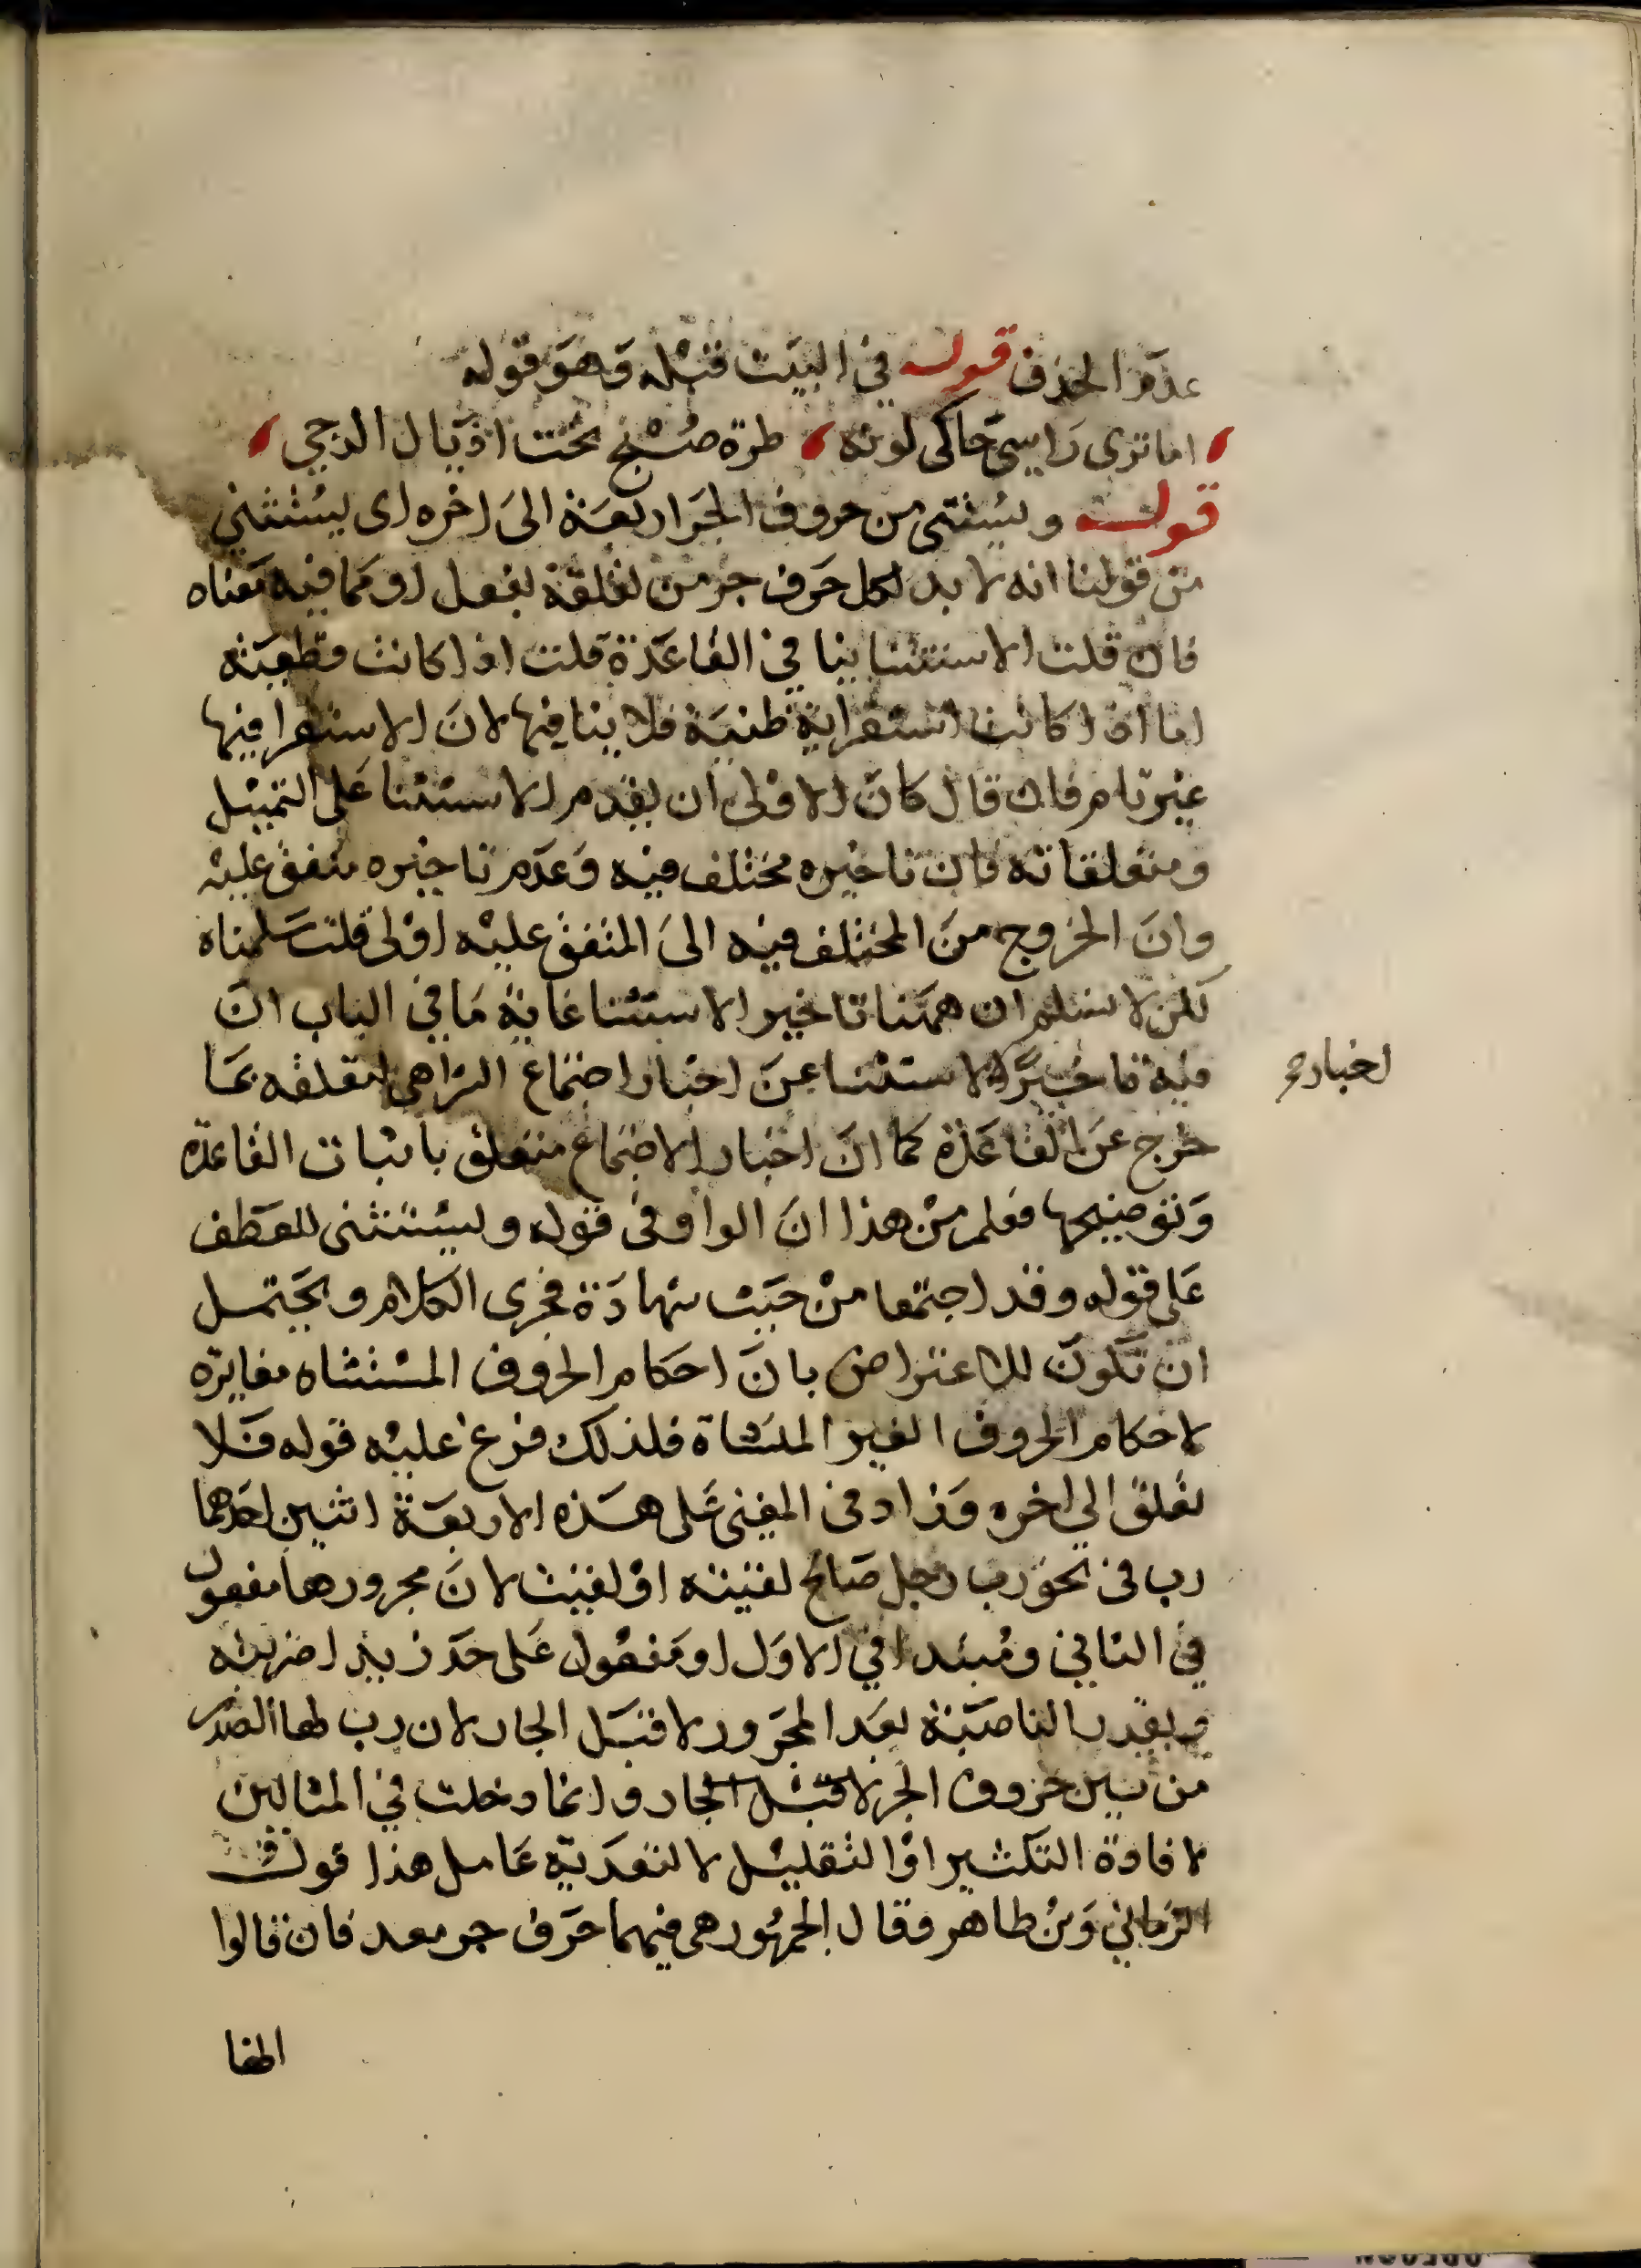 عدم الحذف قوله في البيت قبله وهو قوله
اما ترى راسي حاكى لونه طرة صبح تحت اذيال الدجي
قوله ويستثنى من حروف الجر اربعة الى اخره اى يستثني
من قولنا انه لا بد لكل حرف جر من تعلقه بفعل او مما فيه معناه
فان قلت الاستثنا ينافي القاعدة قلت اذا كانت قطعية
اما اذا كانت استقرايية ظنية فلا ينافيها لان الاستقرا فيها
غير تام فان قال كان الاولى ان يقدم الاستثنا على التمثيل
ومتعلقاته فان تاخيره مختلف فيه وعدم تاخيره متفق عليه
وان الخروج من المختلف فيه الى المتفق عليه اولى قلت سلمناه
لكن لا نسلم ان همنا تاخير الاستثنا غاية ما في الباب ان
فيه تاخير الاستثنا عن اخبار اجتماع الراهي لتعلقه بما
خرج عن القاعدة كما ان اخبار الاجتماع متعلق باثبات القاعدة
وتوضيحها فعلم من هذا ان الواو في قوله ويستثنى للعطف
على قوله وقد اجتمعا من حيث شهادة فحوى الكلام ويحتمل
ان تكون للاعتراض بان احكام الحروف المستثناه مغايرة
لاحكام الحروف الغير المنشاة فلذلك فرع عليه قوله فلا
تعلق الي اخره وزاد في المغني على هذه الاربعة اثنين احدهما
رب في نحو رب رجل صالح لقيته او لقيت لان مجرورها مفعول
في الثاني ومبتدا في الاول او مفعول على حد زيدا ضربته
ويقدر الناصبة بعد المجرور لا قبل الجار لان رب لها الصدر
من بين حروف الجر لا قبل الجار وانما دخلت في المثالين
لافادة التكثير او التقليل لا لتعدية عامل هذا قول
الرماني وبن طاهر وقال الجمهور هي فيهما حرف جر معد فان قالوا
اخبار صح
انها